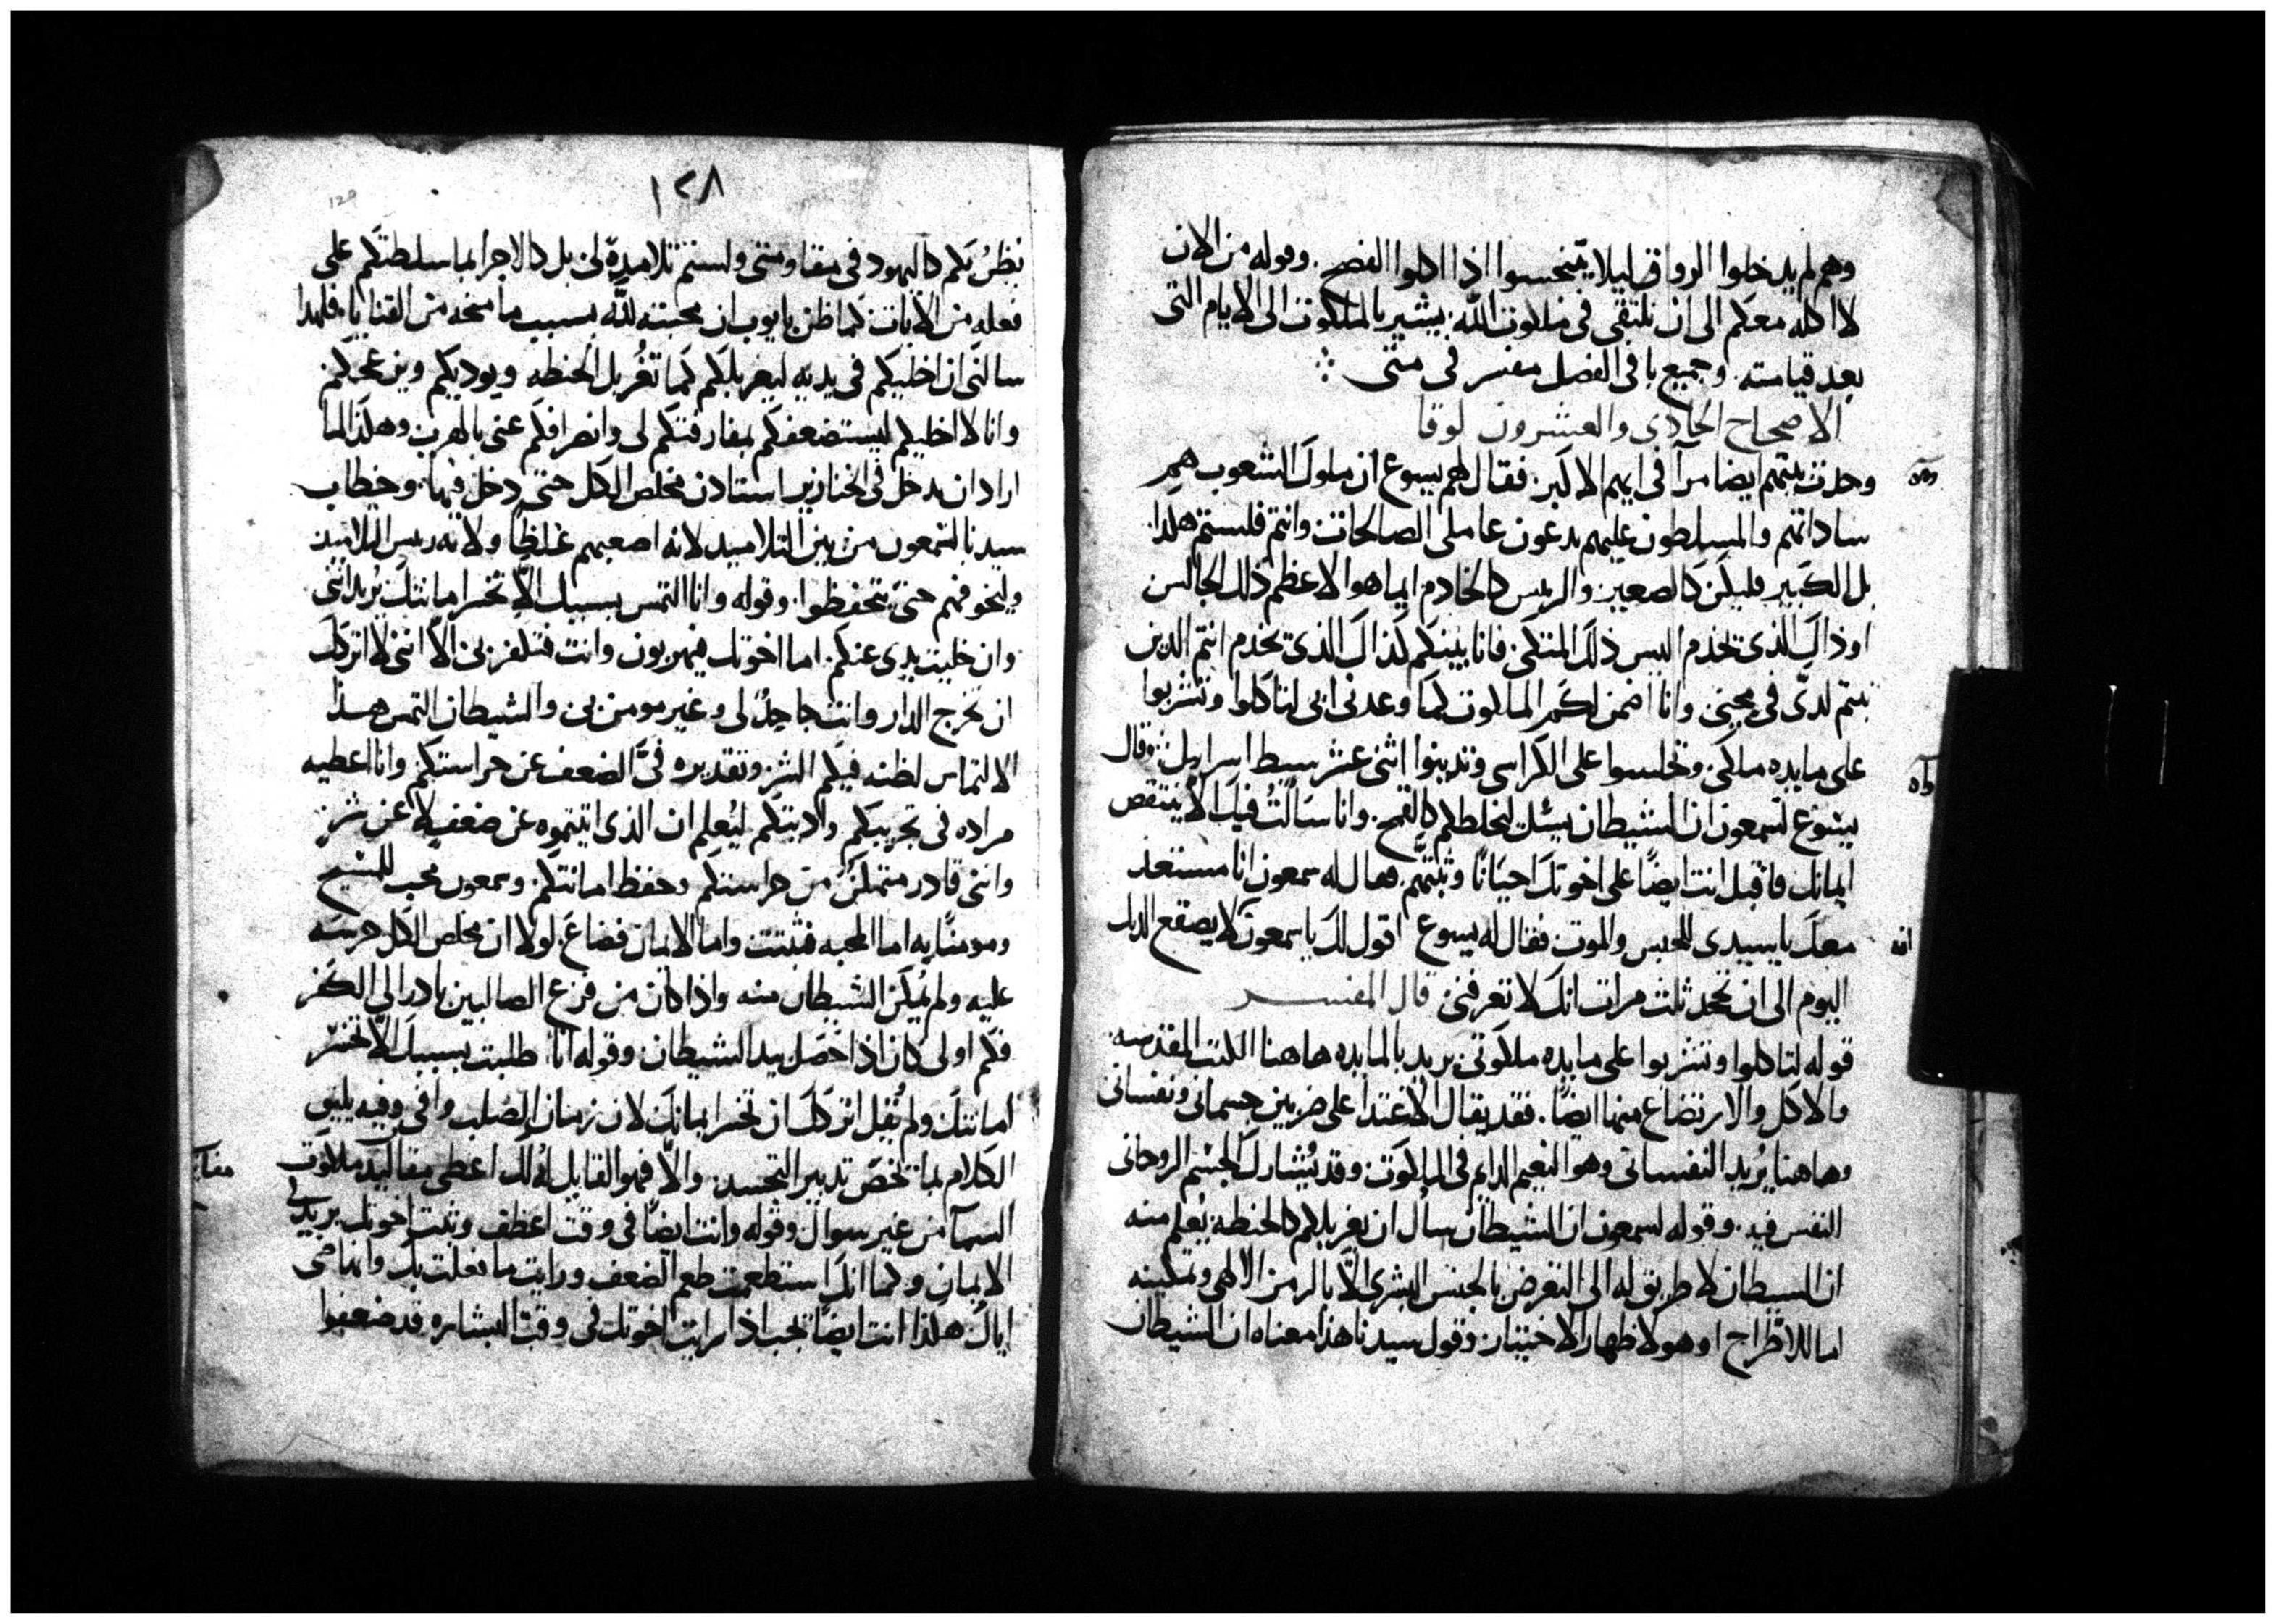 وهم لم يدخلوا الرواق ليلا يتنجسوا اذا اكلوا الفصح . وقوله من الان
لا اكله معكم الى ان نلتقى فى ملكوت الله . يشير بالملكوت الى الايام التى
بعد قيامته . وجميع باقى الفصل مفسر فى متى
الاصحاح الحادى والعشرون لوقا
وحدث بينهم ايضا مرآ فى ايهم الاكبر . فقال لهم يسوع ان ملوك الشعوب هم
ساداتهم والمسلطون عليهم يدعون عاملى الصالحات وانتم فلستم هكذا .
بل الكبير فليكن كالصغير . والريس كالخادم ايما هو الاعظم ذلك الجالس
او ذاك الذى يخدم اليس ذلك المتكى . فانا بينكم كذاك الذى يخدم انتم الدين
ثبتم لدى فى محنى وانا اضمن لكم الملكوت كما وعدنى ابى لتاكلوا وتشربوا
على مايده ملكى وتجلسوا على الكراسى وتدينوا اثنى عشر سبط اسراييل . وقال
يسوع لسمعون ان الشيطان يسئل ليخلطكم كالقمح . وانا سالت فيك الا ينتقص
ايمانك فاقبل انت ايضًا على اخوتك احيانًا وثبتهم . فقال له سمعون انا مستعد
معك ياسيدى للحبس والموت فقال له يسوع اقول لك ياسمعون لا يصقع الديك
اليوم الى ان تجحد ثلث مرات انك لا تعرفنى قال المفسر
قوله لتاكلوا وتشربوا على مايده ملكوتى يريد بالمايده هاهنا الكتب المقدسه
والاكل والارتضاع منها ايضًا . فقد يقال الاغتدا على ضربين جسمانى ونفسانى
وهاهنا يُريد النفسانى وهو النعيم الدايم فى الملكوت وقد يُشارك الجسم الروحانى
النفس فيه . وقوله لسمعون ان الشيطان سال ان يغربلكم كالحنطه . يُعلم منه
ان الشيطان لا طريق له الى التعرض بالجنس البشرى الا بالرمز الالهى وتمكينه
اما للاطراح او هو لاظهار الاختبار . وقول سيدنا هذا معناه ان الشيطان
١٢٨
129
نظركم كاليهود فى مقاومتى ولستم تلاميدة لى بل كالاجرا لما سلطتكم على
فعله من الايات كما ظن بايوب ان محبته لله بسبب ما منحه من القنايا . فلهدا
سالنى ان اخليكم فى يديه ليغربلكم كما تُغربل الحنطه ويوديكم ويزعجكم .
وانا لا اخليكم ليستضعفكم بمفارقتكم لى وانصرافكم عنى بالهرب وهكذا لما
اراد ان يدخل فى الخنازير استادن مخلص الكل حتى دخل فيها . وخطاب
سيدنا لشمعون من بين التلاميد لانه اصعبهم غلظًا ولانه ريس التلاميد
وليخوفهم حتى يتحفظوا . وقوله وانا التمس بسببك الا تخسر امانتك يُريد اننى
وان خليت يدى عنكم . اما اخوتك فيهربون وانت فتكفر بى الا اننى لا اتركك
ان تخرج الدار وانت جاحدٌ لى وغير مومن بى والشيطان التمس هذا
الالتماس لظنه فيكم الشر وتقديره فىّ الضعف عن حراستكم وانا اعطيه
مراده فى تجريبكم واديتكم ليُعلم ان الذى اتيتموه عن ضعف لا عن شر
واننى قادر متمكن من حراستكم وحفظ امانتكم . وسمعون محب للمسيح
ومومنًا به اما المحبه فثبتت واما الايمان فضاع . لولا ان مخلص الكل حرسه
عليه ولم يُمكن الشيطان منه واذا كان من فزع الصالبين بادر الى الكفر
فكم اولى كان اذا حصل بيد الشيطان وقوله انا طلبت بسببك الا تخسر
امانتك ولم يُقل اتركك ان تخسر ايمانك لان زمان الصلب وافى وفيه يليق
الكلام بما تخص تدبير التجسد . والا فهو القايل له لك اعطى مقاليد ملكوت
السمآ من غير سوال وقوله وانت ايضًا فى وقت اعطف وثبت اخوتك يريد فى
الايمان وكما انك استطعمت طعم الضعف ورايت ما فعلت بك وانهاضى
اياك هكذا انت ايضا يجب اذا رايت اخوتك فى وقت البشاره قد ضعفوا